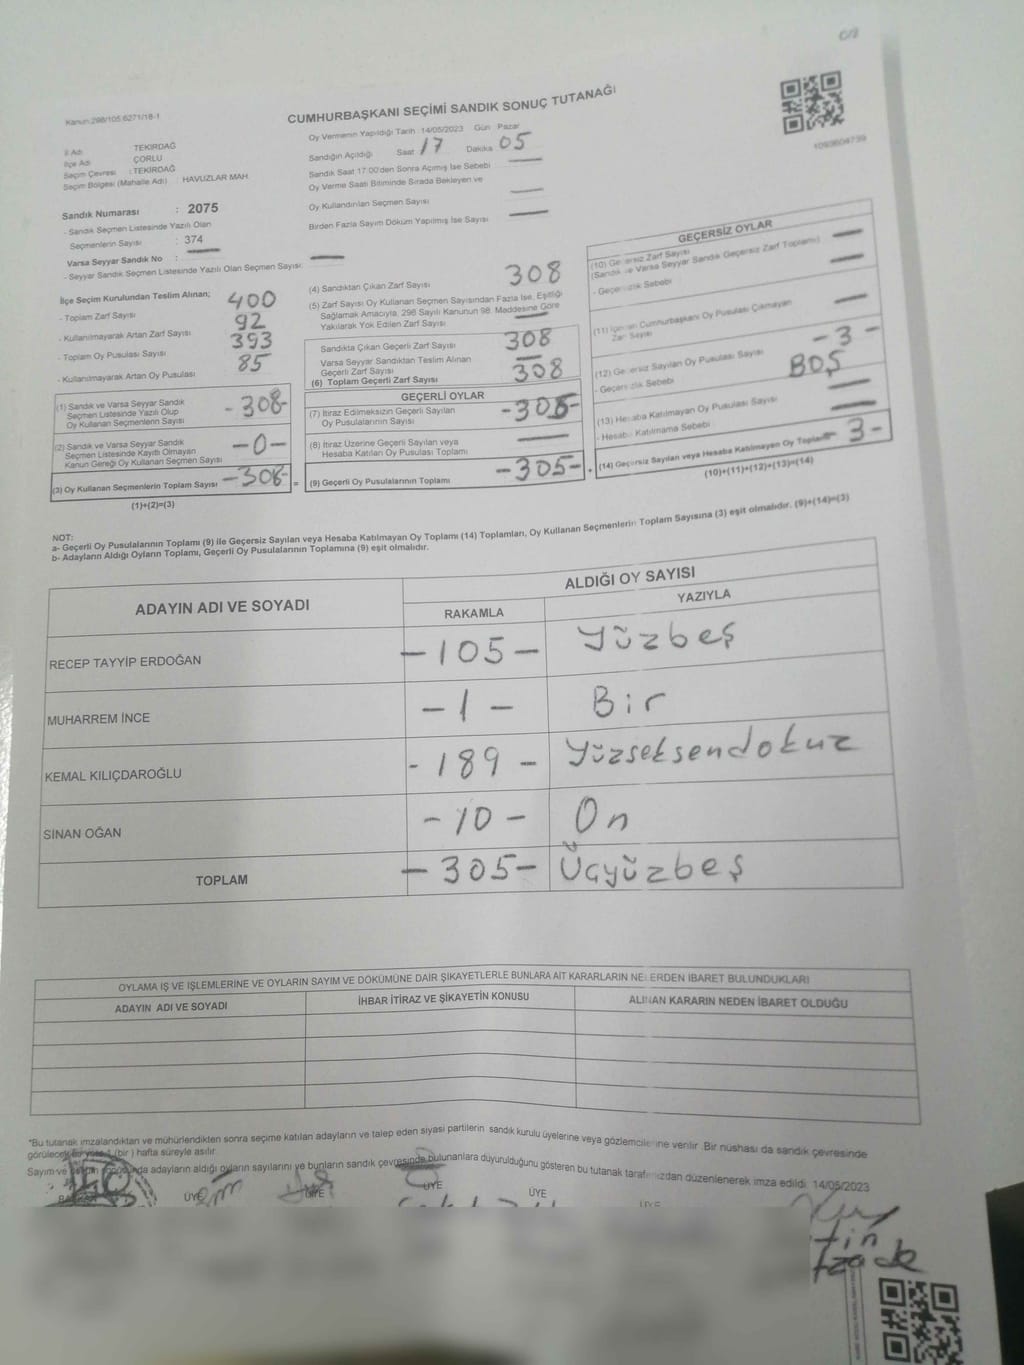 Kanun:298/105.6271/18-1
CUMHURBAŞKANI SEÇİMİ SANDIK SONUÇ TUTANAĞI
1093604739
İl Adı TEKİRDAĞ
İlçe Adı ÇORLU
Seçim Çevresi : TEKİRDAĞ
Seçim Bölgesi (Mahalle Adı) : HAVUZLAR MAH.
Sandık Numarası : 2075
- Sandık Seçmen Listesinde Yazılı Olan
Seçmenlerin Sayısı : 374
Varsa Seyyar Sandık No :
- Seyyar Sandık Seçmen Listesinde Yazılı Olan Seçmen Sayısı:
Oy Vermenin Yapıldığı Tarih : 14/05/2023 Gün Pazar
Sandığın Açıldığı Saat 17 Dakika 05
Sandık Saat 17:00'den Sonra Açılmış İse Sebebi
Oy Verme Saati Bitiminde Sırada Bekleyen ve
Oy Kullandırılan Seçmen Sayısı
Birden Fazla Sayım Döküm Yapılmış İse Sayısı
İlçe Seçim Kurulundan Teslim Alınan;
- Toplam Zarf Sayısı 400
- Kullanılmayarak Artan Zarf Sayısı 92
- Toplam Oy Pusulası Sayısı 393
- Kullanılmayarak Artan Oy Pusulası 85
(1) Sandık ve Varsa Seyyar Sandık
Seçmen Listesinde Yazılı Olup
Oy Kullanan Seçmenlerin Sayısı - 308 -
(2) Sandık ve Varsa Seyyar Sandık
Seçmen Listesinde Kayıtlı Olmayan
Kanun Gereği Oy Kullanan Seçmen Sayısı - 0 -
(3) Oy Kullanan Seçmenlerin Toplam Sayısı - 308 -
(1)+(2)=(3)
(4) Sandıktan Çıkan Zarf Sayısı 308
(5) Zarf Sayısı Oy Kullanan Seçmen Sayısından Fazla İse, Eşitliği
Sağlamak Amacıyla, 298 Sayılı Kanunun 98. Maddesine Göre
Yakılarak Yok Edilen Zarf Sayısı
Sandıkta Çıkan Geçerli Zarf Sayısı 308
Varsa Seyyar Sandıktan Teslim Alınan
Geçerli Zarf Sayısı
(6) Toplam Geçerli Zarf Sayısı 308
GEÇERLİ OYLAR
(7) İtiraz Edilmeksizin Geçerli Sayılan
Oy Pusulalarının Sayısı - 305 -
(8) İtiraz Üzerine Geçerli Sayılan veya
Hesaba Katılan Oy Pusulası Toplamı
= (9) Geçerli Oy Pusulalarının Toplamı - 305 - +
GEÇERSİZ OYLAR
(10) Geçersiz Zarf Sayısı
(Sandık ve Varsa Seyyar Sandık Geçersiz Zarf Toplamı)
- Geçersizlik Sebebi
(11) İçinden Cumhurbaşkanı Oy Pusulası Çıkmayan
Zarf Sayısı
(12) Geçersiz Sayılan Oy Pusulası Sayısı - 3 -
- Geçersizlik Sebebi BOŞ
(13) Hesaba Katılmayan Oy Pusulası Sayısı
- Hesaba Katılmama Sebebi
(14) Geçersiz Sayılan veya Hesaba Katılmayan Oy Toplamı - 3 -
(10)+(11)+(12)+(13)=(14)
NOT:
a- Geçerli Oy Pusulalarının Toplamı (9) ile Geçersiz Sayılan veya Hesaba Katılmayan Oy Toplamı (14) Toplamları, Oy Kullanan Seçmenlerin Toplam Sayısına (3) eşit olmalıdır. (9)+(14)=(3)
b- Adayların Aldığı Oyların Toplamı, Geçerli Oy Pusulalarının Toplamına (9) eşit olmalıdır.
ADAYIN ADI VE SOYADI ALDIĞI OY SAYISI
RAKAMLA YAZIYLA
RECEP TAYYİP ERDOĞAN - 105 - Yüzbeş
MUHARREM İNCE - 1 - Bir
KEMAL KILIÇDAROĞLU - 189 - Yüzseksendokuz
SİNAN OĞAN - 10 - On
TOPLAM - 305 - Üçyüzbeş
OYLAMA İŞ VE İŞLEMLERİNE VE OYLARIN SAYIM VE DÖKÜMÜNE DAİR ŞİKAYETLERLE BUNLARA AİT KARARLARIN NELERDEN İBARET BULUNDUKLARI
ADAYIN ADI VE SOYADI İHBAR İTİRAZ VE ŞİKAYETİN KONUSU ALINAN KARARIN NEDEN İBARET OLDUĞU
*Bu tutanak imzalandıktan ve mühürlendikten sonra seçime katılan adayların ve talep eden siyasi partilerin sandık kurulu üyelerine veya gözlemcilerine verilir. Bir nüshası da sandık çevresinde
görülecek bir yere 1 (bir) hafta süreyle asılır.
Sayım ve döküm sonucunda adayların aldığı oyların sayılarını ve bunların sandık çevresinde bulunanlara duyurulduğunu gösteren bu tutanak tarafımızdan düzenlenerek imza edildi. 14/05/2023
BAŞKAN ÜYE ÜYE ÜYE ÜYE ÜYE